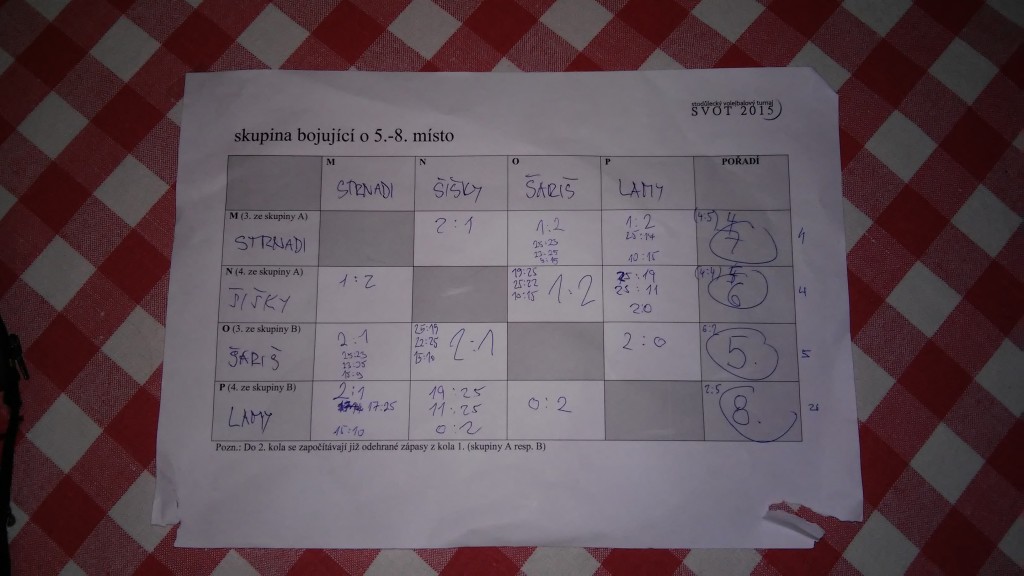 studničecký volejbalový turnaj
SVOT 2015
skupina bojující o 5.-8. místo
M N O P POŘADÍ
STRNADI ŠIŠKY ŠARIŠ LAMY
M (3. ze skupiny A)
STRNADI 2:1 1:2 1:2 (4:5) 4
25:14
10:15
7 4
N (4. ze skupiny A)
ŠIŠKY 1:2 19:25 1:2 25:19 (4:4)
25:22 25:11
10:15 2:0
6 4
O (3. ze skupiny B)
ŠARIŠ 2:1 25:19 2:1 2:0 6:2
22:25
15:10
5. 5
P (4. ze skupiny B)
LAMY 2:1 19:25 0:2 2:5
17:25 11:25
15:10 0:2
8.
Pozn.: Do 2. kola se započítávají již odehrané zápasy z kola 1. (skupiny A resp. B)